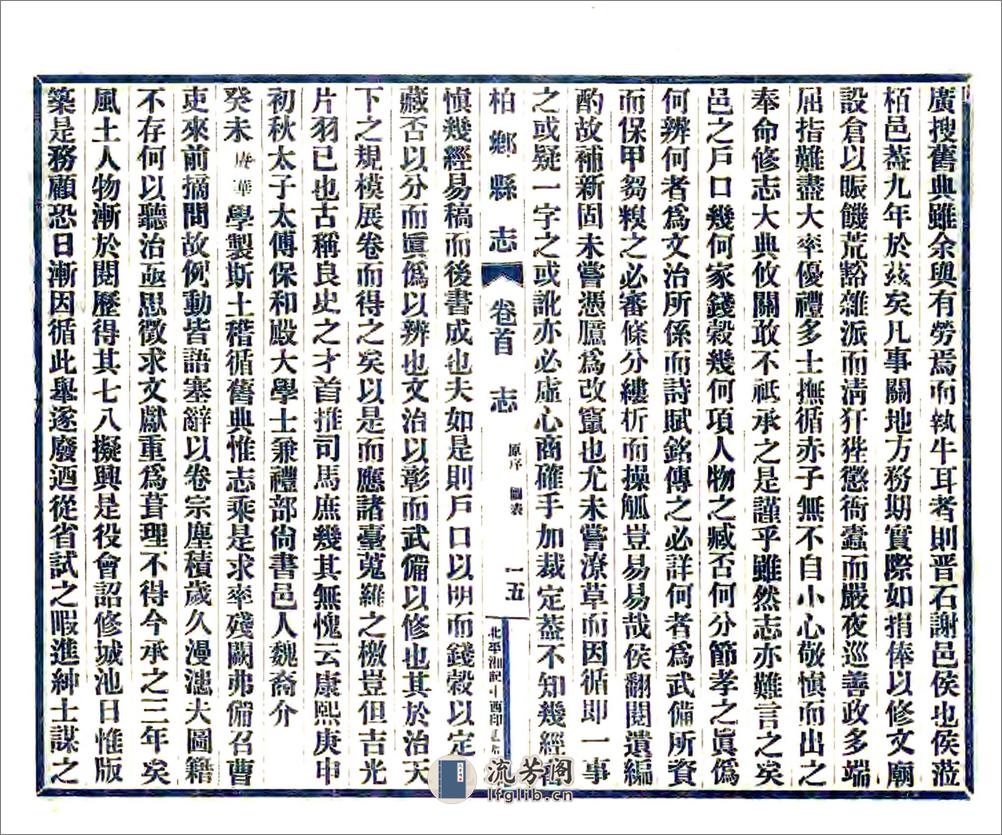 廣搜舊典雖余與有勞焉而執牛耳者則晋石謝邑侯也侯涖
栢邑葢九年於兹矣凡事關地方務期實際如捐俸以修文廟
設倉以賑饑荒豁雜派而淸犴狌懲衙蠹而嚴夜巡善政多端
屈指難盡大率優禮多士撫循赤子無不自小心敬愼而出之
奉命修志大典攸關敢不祇承之是謹乎雖然志亦難言之矣
邑之戶口幾何家錢穀幾何項人物之臧否何分節孝之眞僞
何辨何者爲文治所係而詩賦銘傳之必詳何者爲武備所資
而保甲芻糗之必審條分縷析而操觚豈易易哉侯翻閱遺編
酌故補新固未嘗憑臆爲改竄也尤未嘗潦草而因循卽一事
之或疑一字之或訛亦必虛心商確手加裁定葢不知幾經
柏鄉縣志 卷首 志 原序 圖表 一五
愼幾經易稿而後書成也夫如是則戶口以明而錢穀以定
藏否以分而眞僞以辨也文治以彰而武備以修也其於治天
下之規模展卷而得之矣以是而應諸臺蒐羅之檄豈但吉光
片羽已也古稱良史之才首推司馬庶幾其無愧云康熙庚申
初秋太子太傅保和殿大學士兼禮部尙書邑人魏裔介
癸未 華學製斯土稽循舊典惟志乘是求率殘闕弗備召曹
吏來前摘問故例動皆語塞辭以卷宗塵積歲久漫漶夫圖籍
不存何以聽治亟思徵求文獻重爲葺理不得今承之三年矣
風土人物漸於閱歷得其七八擬興是役會詔修城池日惟版
築是務顧恐日漸因循此舉遂廢迺從省試之暇進紳士謀之
流芳阁
lfglib.cn